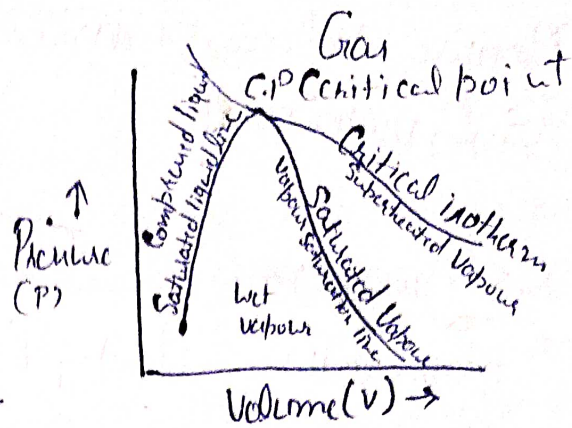 Gas
C.P (critical point
Compressed liquid
Saturated liquid line
Critical isotherm
Superheated Vapour
Saturated Vapour
Vapour saturation line
Wet
vapour
Pressure
(P)
Volume (V) →